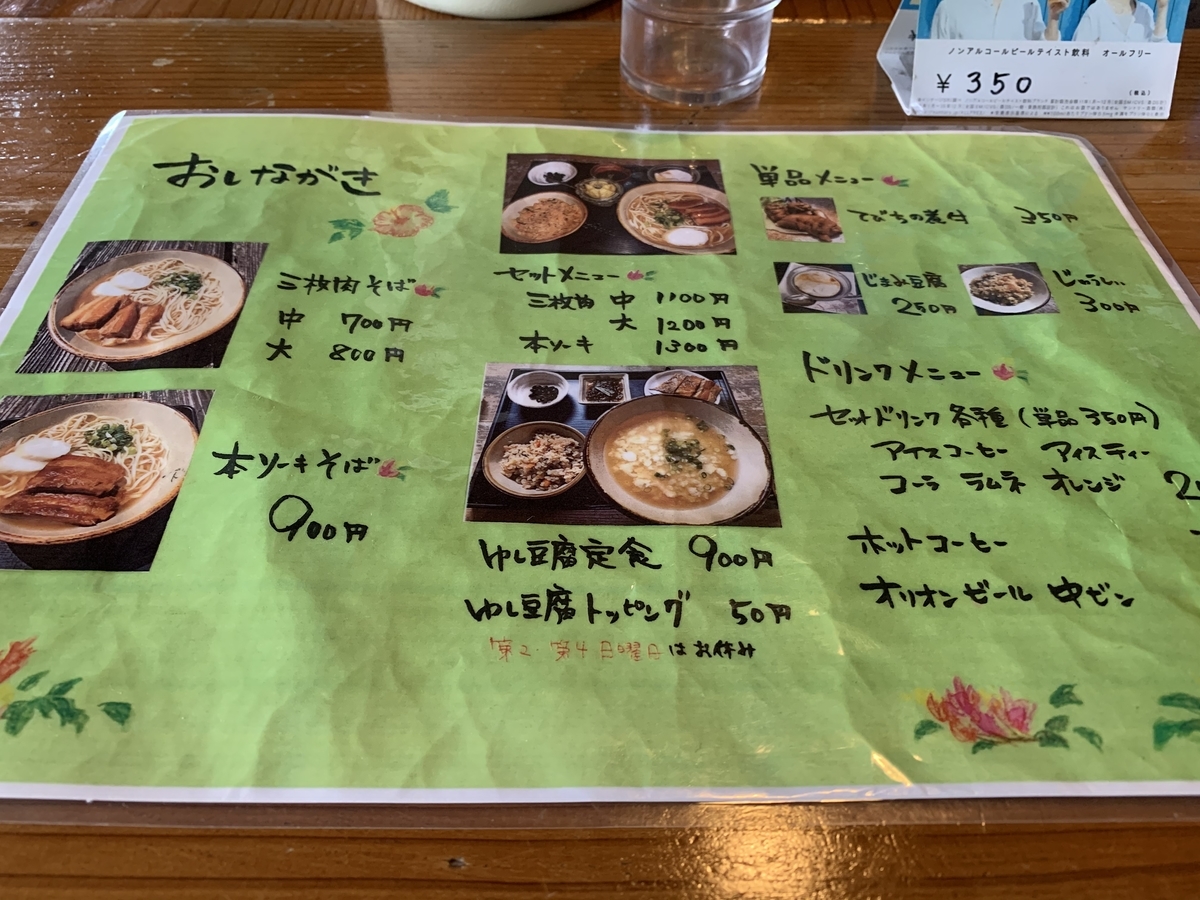 ノンアルコールビールテイスト飲料 オールフリー
¥350
(税込)
おしながき
三枚肉そば
中 700円
大 800円
本ソーキそば
900円
セットメニュー
三枚肉 中 1100円
大 1200円
本ソーキ 1300円
ゆし豆腐定食 900円
ゆし豆腐トッピング 50円
第2・第4日曜日はお休み
単品メニュー
てびちの煮付 350円
じまみ豆腐
250円
じゅうしぃ
300円
ドリンクメニュー
セットドリンク各種(単品350円)
アイスコーヒー アイスティー
コーラ ラムネ オレンジ
ホットコーヒー
オリオンビール 中ビン